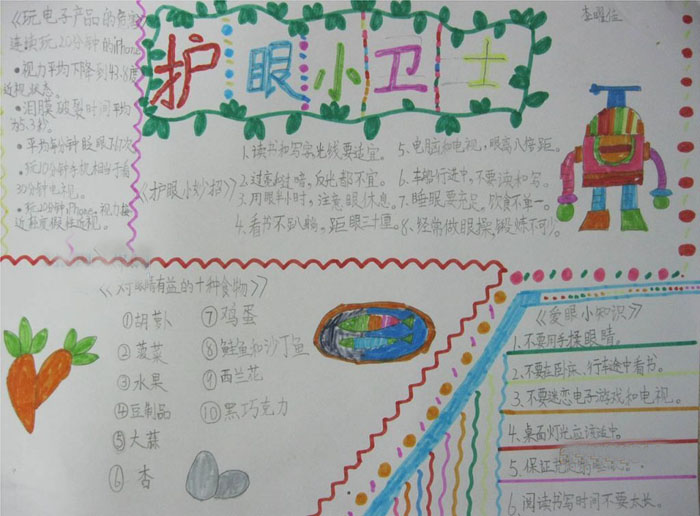 护眼小卫士
《玩电子产品的
连续玩20分钟的iPhone
•视力平均下降到43.8度
近视状态。
•泪膜破裂时间平均
为3秒。
•平均每分钟眨眼
•玩10分钟手机相当于看
30分钟电视。
•玩20分钟iPhone,视力接
近轻度假性近视。
《护眼小妙招》
1、读书和写字光线要适宜。
2、过亮过暗,反光都不宜。
3、用眼半小时,注意眼休息。
4、看书不趴躺,距眼三十厘。
5、电脑和电视,眼离八倍距。
6、车船行进中,不要读和写。
7、睡眠要充足,饮食不单一。
8、经常做眼操,锻炼不可少。
《对眼睛有益的十种食物》
①胡萝卜
②菠菜
③水果
④豆制品
⑤大蒜
⑥杏
⑦鸡蛋
⑧鲑鱼和沙丁鱼
⑨西兰花
⑩黑巧克力
《爱眼小知识》
1、不要用手揉眼睛。
2、不要在卧床、行车途中看书。
3、不要迷恋电子游戏和电视。
4、桌面灯光应该适中。
5、保证
6、阅读书写时间不要太长。